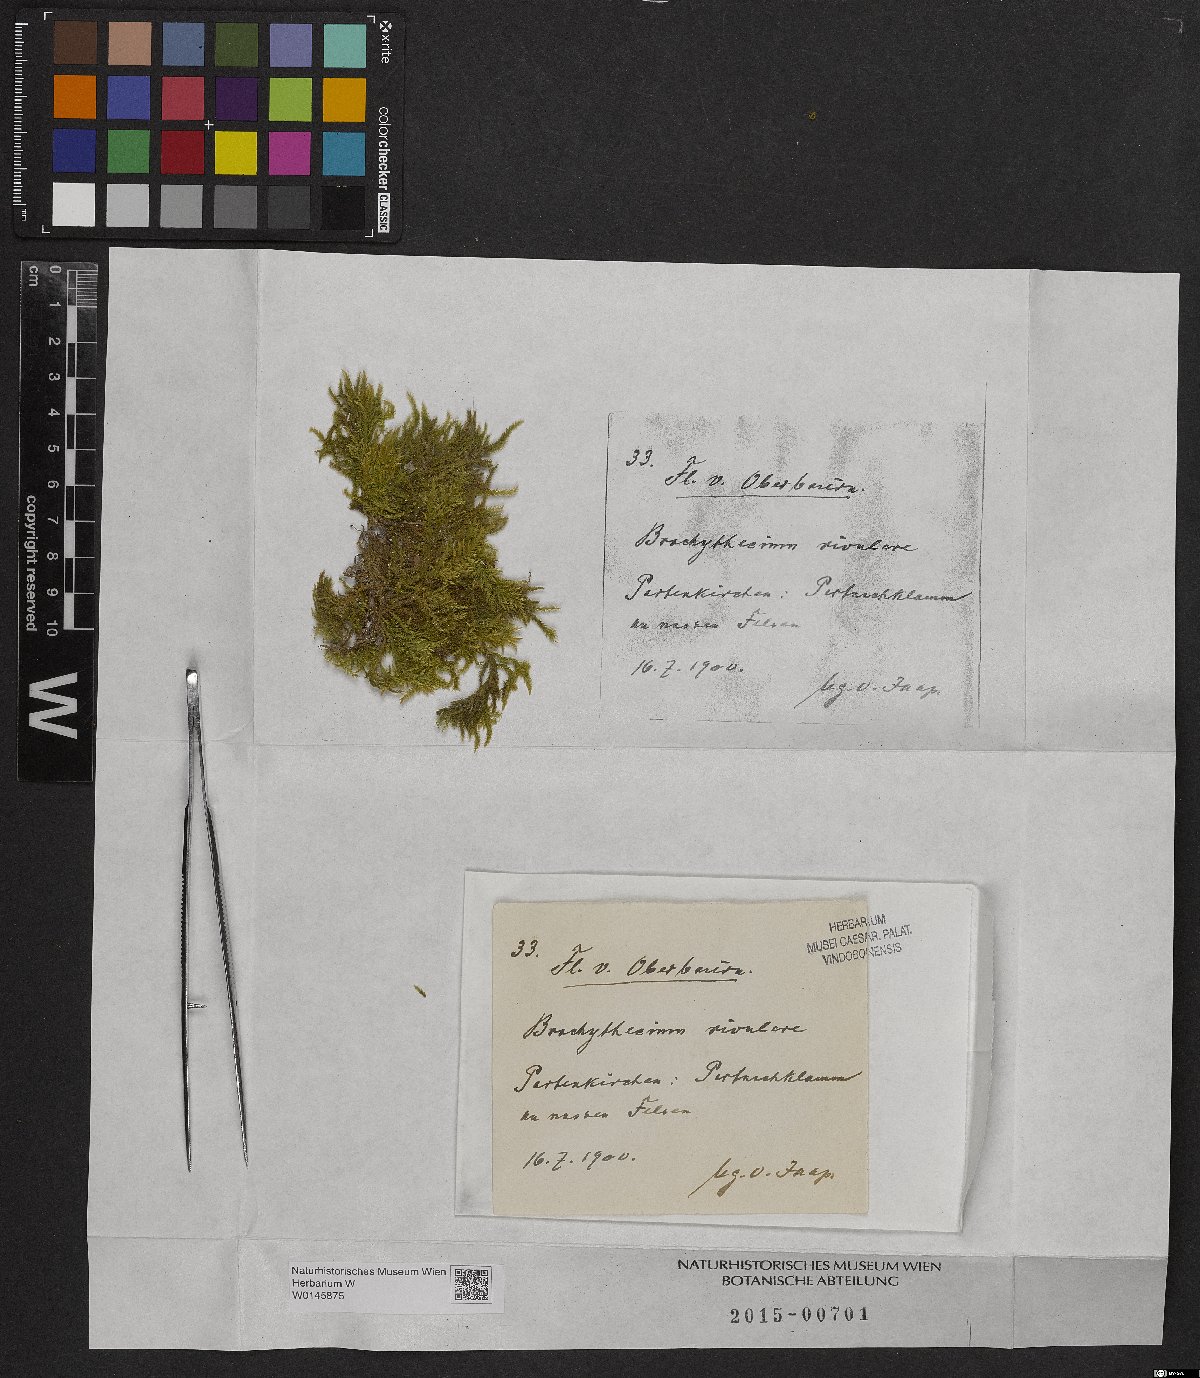 x-rite
colorchecker CLASSIC
mm
0 1 2 3 4 5 6 7 8 9 10
cm
copyright reserved
W
33.
Fl. v. Oberbaiern.
Brachythecium rivulare
Partenkirchen: Partnachklamm
an nassen Felsen
16.7.1900.
leg. O. Jaap.
HERBARIUM
MUSEI CAESAR. PALAT.
VINDOBONENSIS
33.
Fl. v. Oberbaiern.
Brachythecium rivulare
Partenkirchen: Partnachklamm
an nassen Felsen
16.7.1900.
leg. O. Jaap.
Naturhistorisches Museum Wien
Herbarium W
W0145875
NATURHISTORISCHES MUSEUM WIEN
BOTANISCHE ABTEILUNG
2015-00701